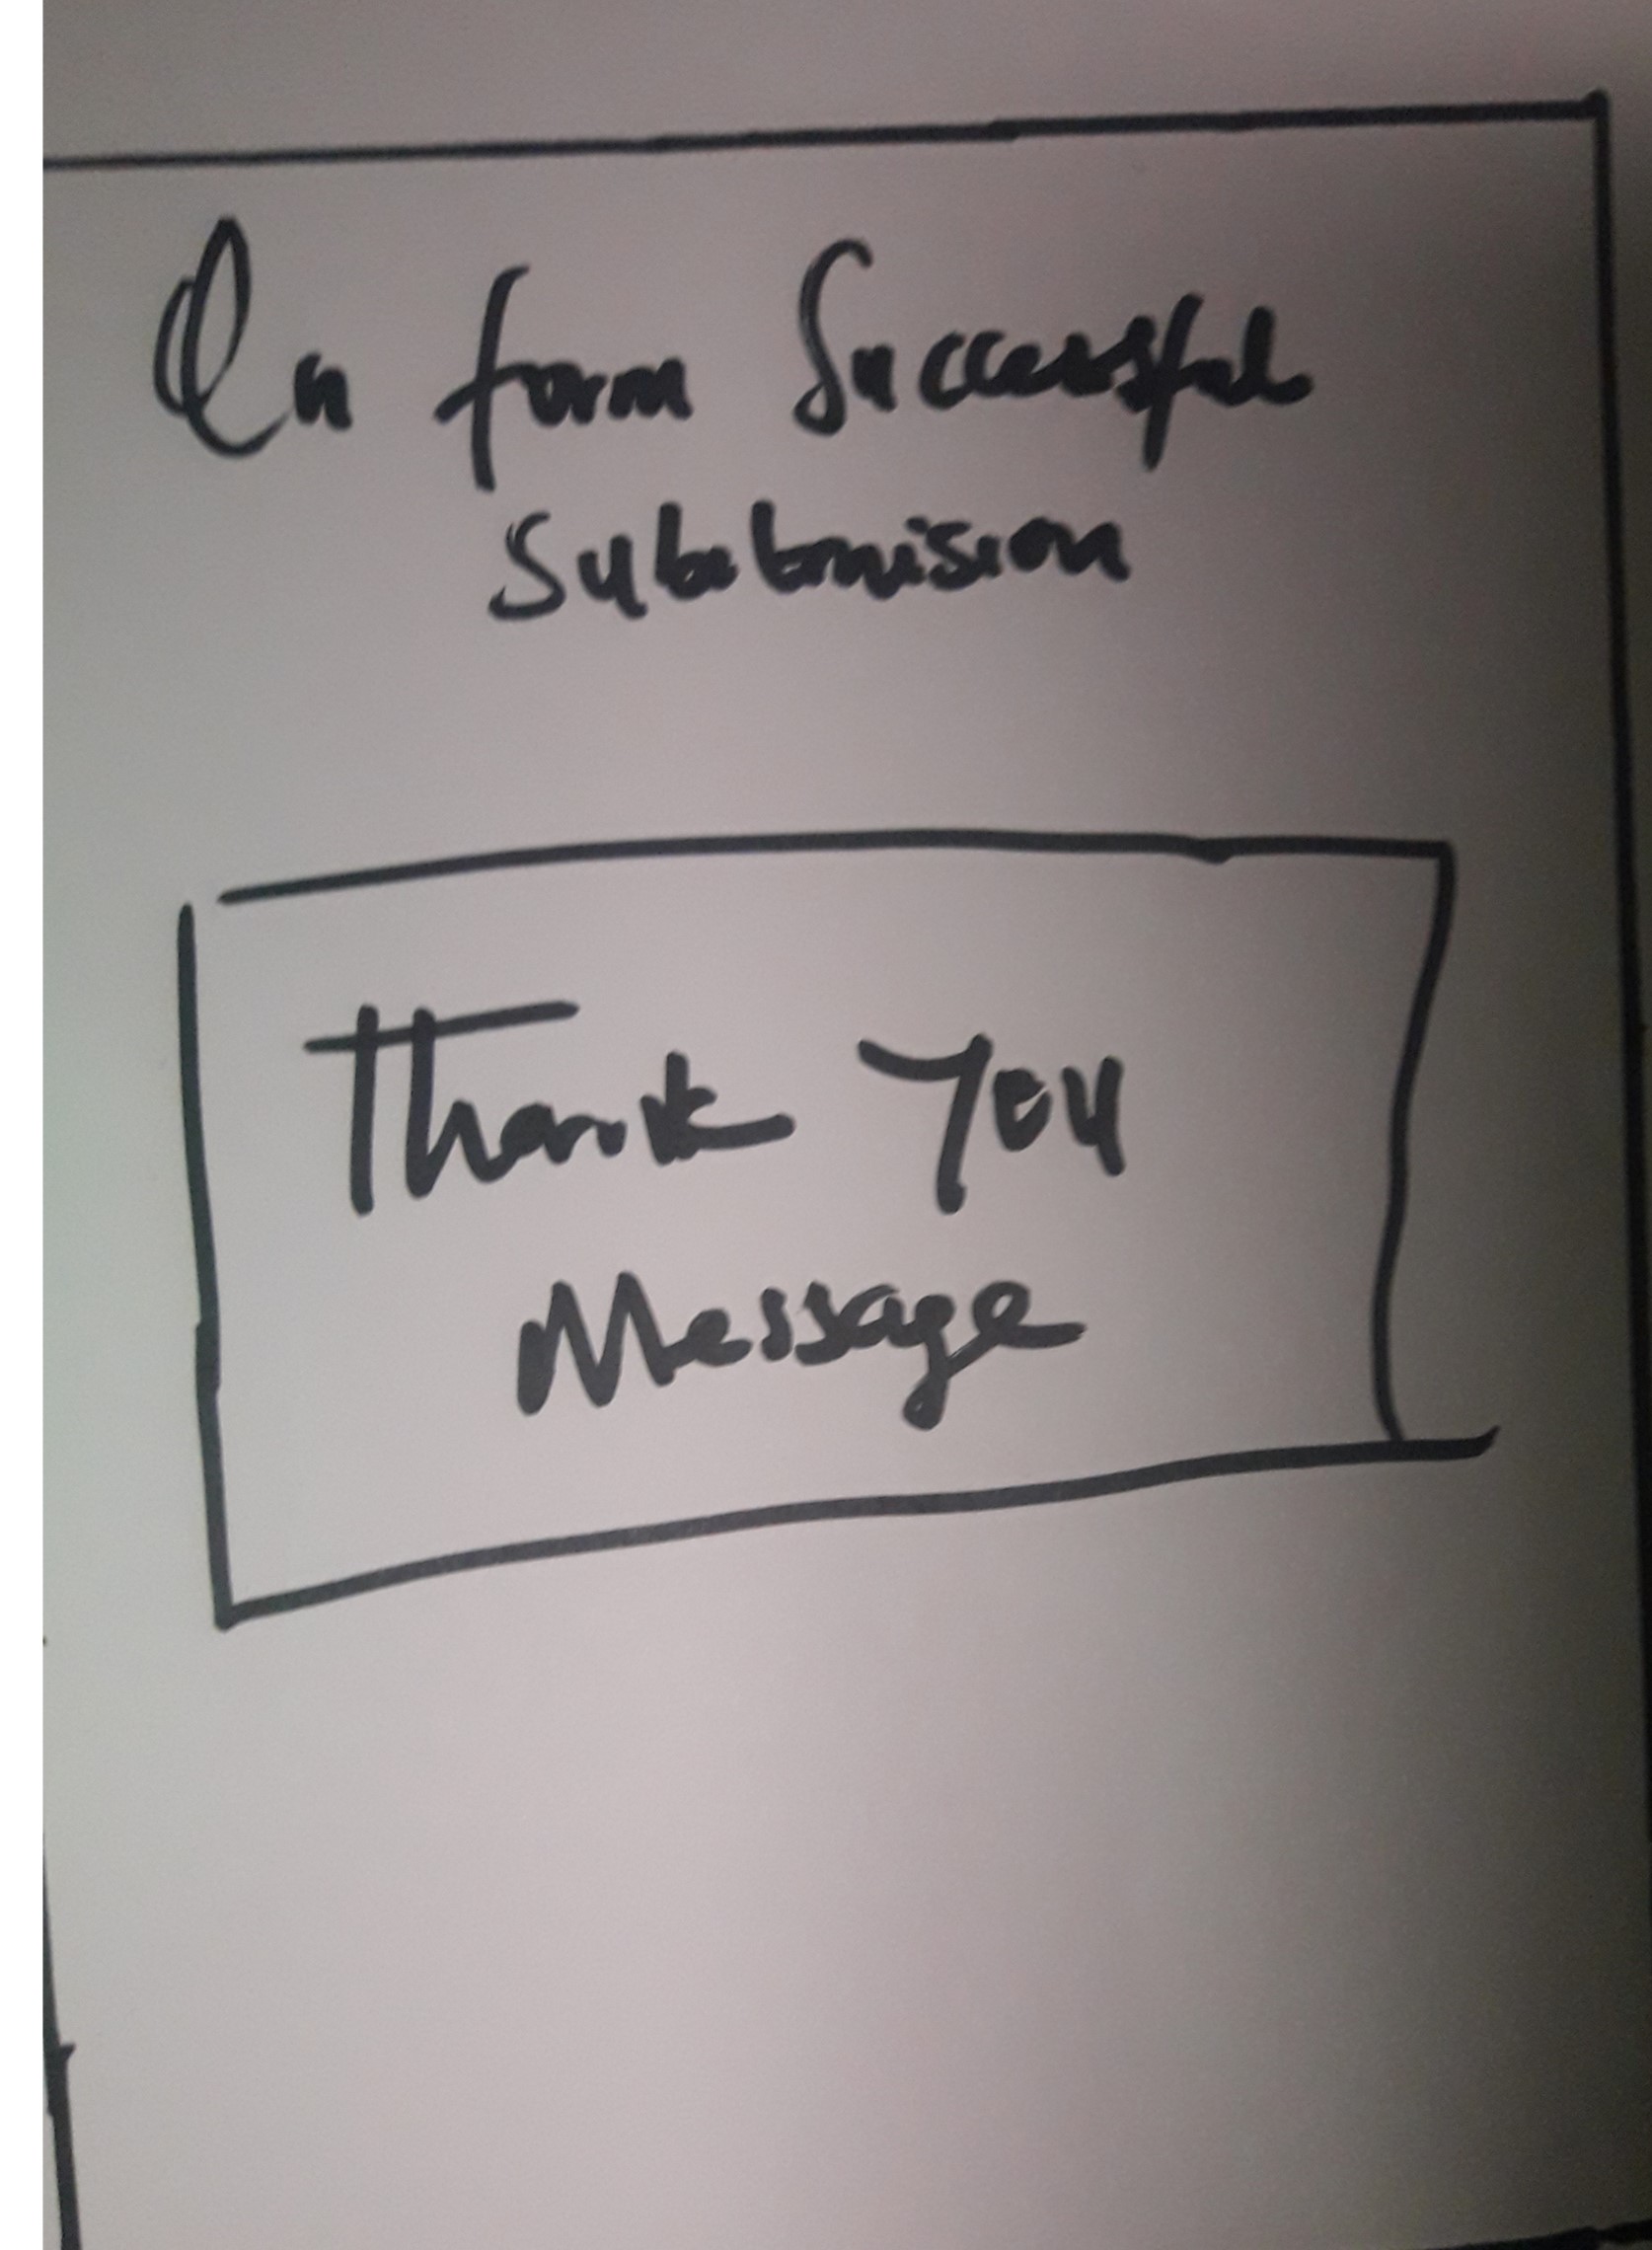 On form Successful
Subbmision
Thank You
Message